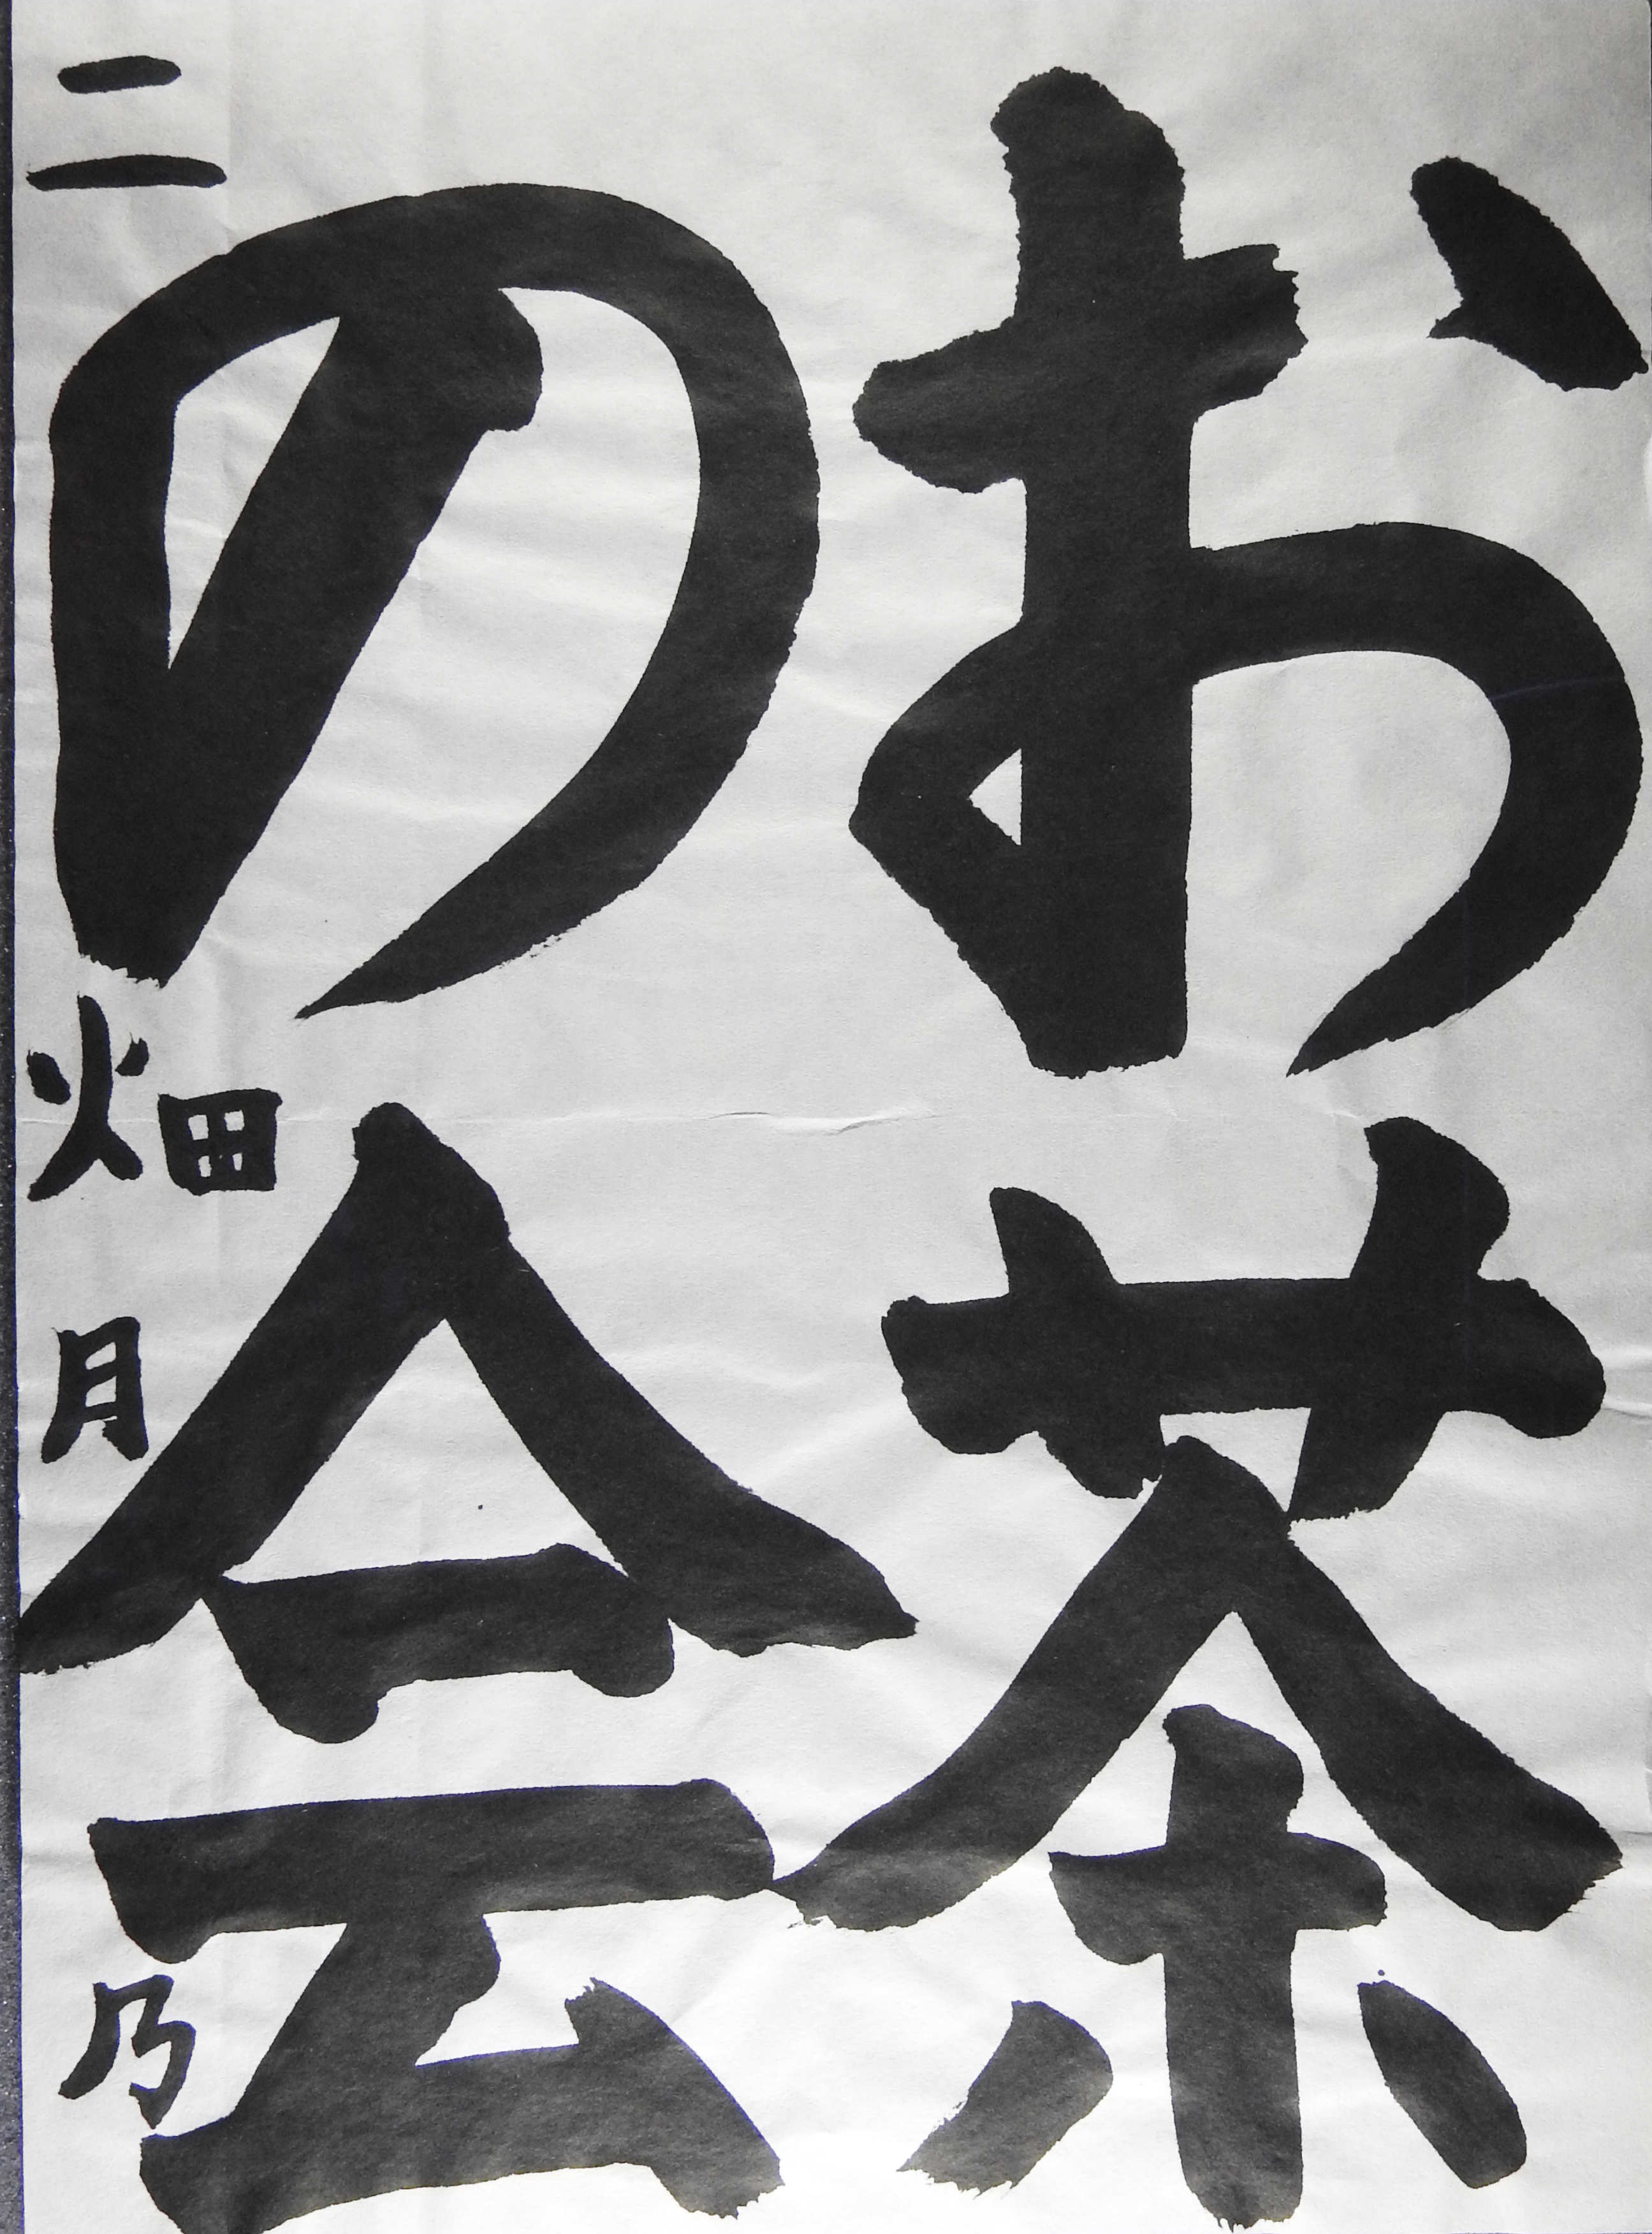 お茶
の会
二 畑月乃